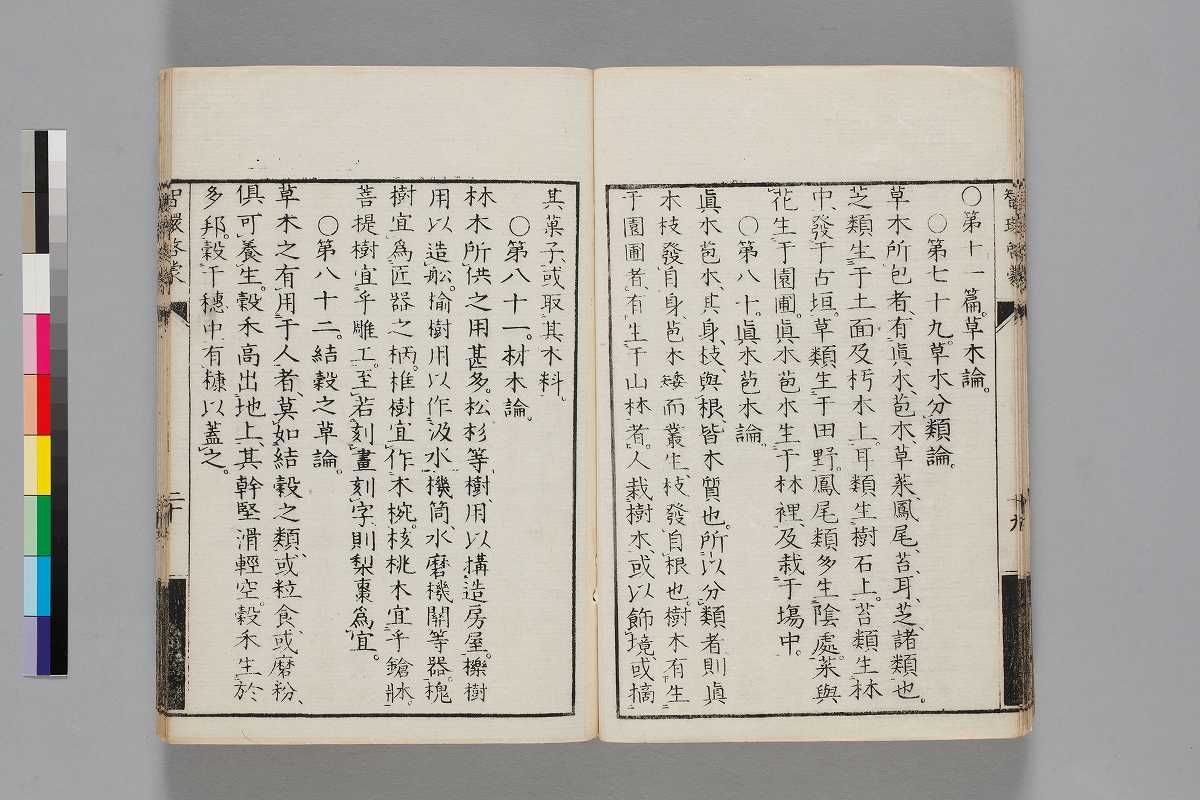 智環啓蒙
十九
○第十一篇。草木論。
○第七十九。草木分類論。
草木所包者、有眞木、苞木、草菜、鳳尾、苔、耳、芝、諸類也。
芝類生于土面及朽木上。耳類生樹石上。苔類生林
中、發于古垣。草類生于田野。鳳尾類多生陰處。菜與
花生于園圃。眞木苞木生于林裡、及栽于塲中。
○第八十。眞木苞木論。
眞木苞木、其身、枝、與根、皆木質也。所以分類者則眞
木枝發自身、苞木矮而叢生、枝發自根也。樹木有生
于園圃者、有生于山林者。人栽樹木、或以飾境或摘
其菓子、或取其木料。
○第八十一。材木論。
林木所供之用甚多。松杉等樹、用以搆造房屋。櫟樹
用以造船。揄樹用以作汲水機筒、水磨機關等器。槐
樹宜爲匠器之柄。椎樹宜作木椀。核桃木宜乎鎗牀。
菩提樹宜乎雕工。至若刻畫刻字、則梨棗爲宜。
○第八十二。結穀之草論。
草木之有用于人者、莫如結穀之類、或粒食、或磨粉、
俱可養生。穀禾高出地上、其幹堅滑輕空。穀禾生於
多邦。穀于穗中、有糠以蓋之。
智環啓蒙
二十